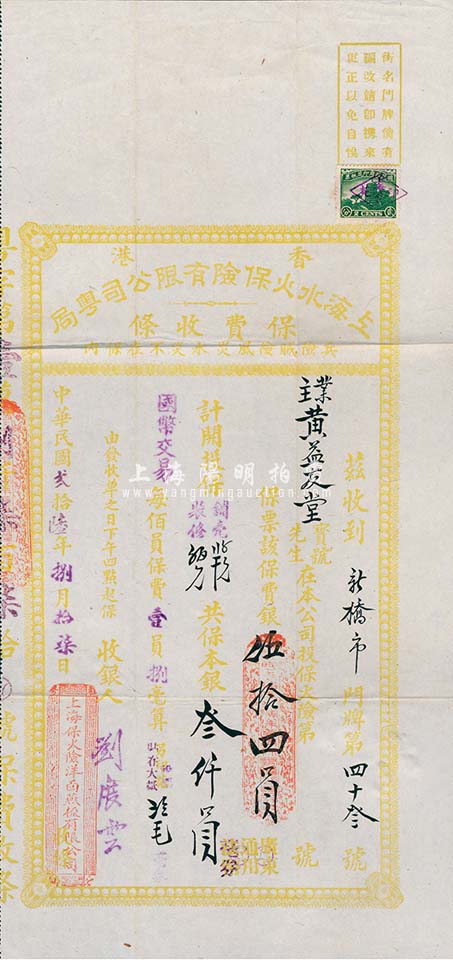 街名門牌倘有
誤改請即擲來
更正以免自悞
2 CENTS
香港
上海水火保險有限公司粵局
保費收條
兵險賊險風災水災不在保內
茲收到 新橋市 門牌第 四十叁 號
業主 黃益友堂 寶號 先生 在本公司投保火險第 號
保票該保費銀 伍拾四員
計開
共保本銀 叁仟員
國幣交易 每佰員保費 壹員捌毫算
由發收單之日下午四點起保
收銀人 劉展雲
中華民國貳拾陸年捌月拾柒日
上海保火險洋面燕梳有限公司
號保費收條
上海陽明拍
www.yangmingauction.com